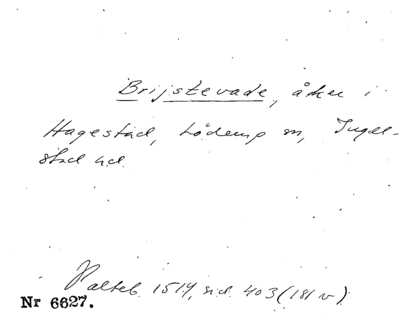 Brijstevade, åker i
Hagestad, Löderup sn, Ingel-
stad hd.
Palteb. 1514, sid. 403 (181 v).
Nr 6627.